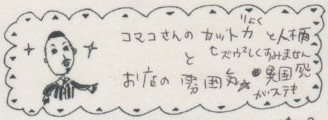 コマコさんのカット力と人柄
りにく
ヒズウしくすみません
と
お店の雰囲気 異国感
がステキ